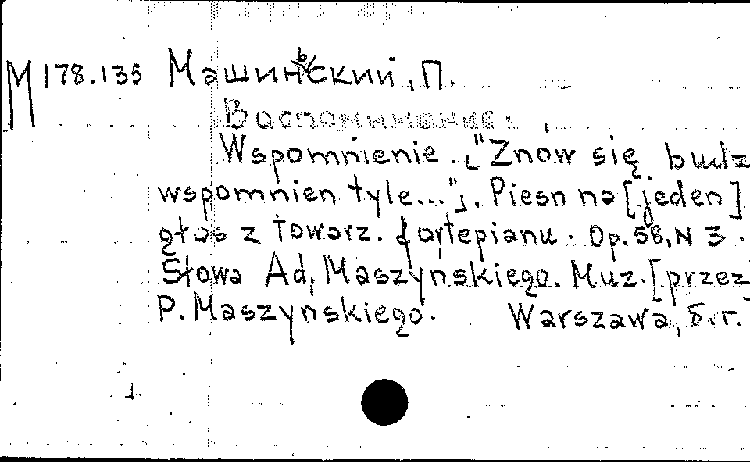 M 178.135 Машиньский, П.
Воспоминание.
Wspomnienie. ["Znów się budz
wspomnien tyle..."]. Piesn na [jeden]
głos z towarz. fortepianu. Op. 58, N 3.
Słowa Ad. Maszyńskiego. Muz. [przez]
P. Maszynskiego. Warszawa, б.г.
1